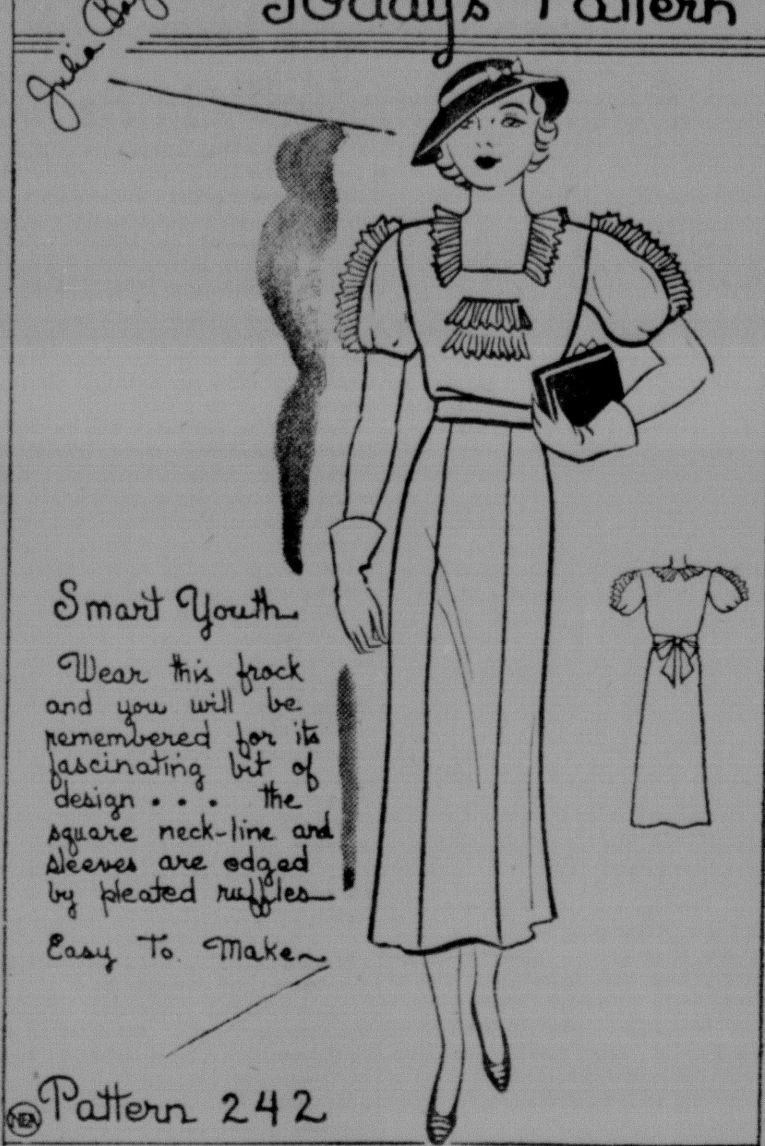 Today's Pattern
Julia
Smart Youth
Wear this frock
and you will be
remembered for its
fascinating bit of
design . . . the
square neck-line and
sleeves are edged
by pleated ruffles
Easy To Make
Pattern 242
NEA